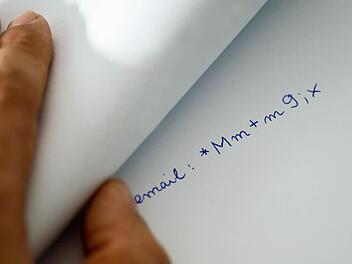 email: *Mm+mg;x